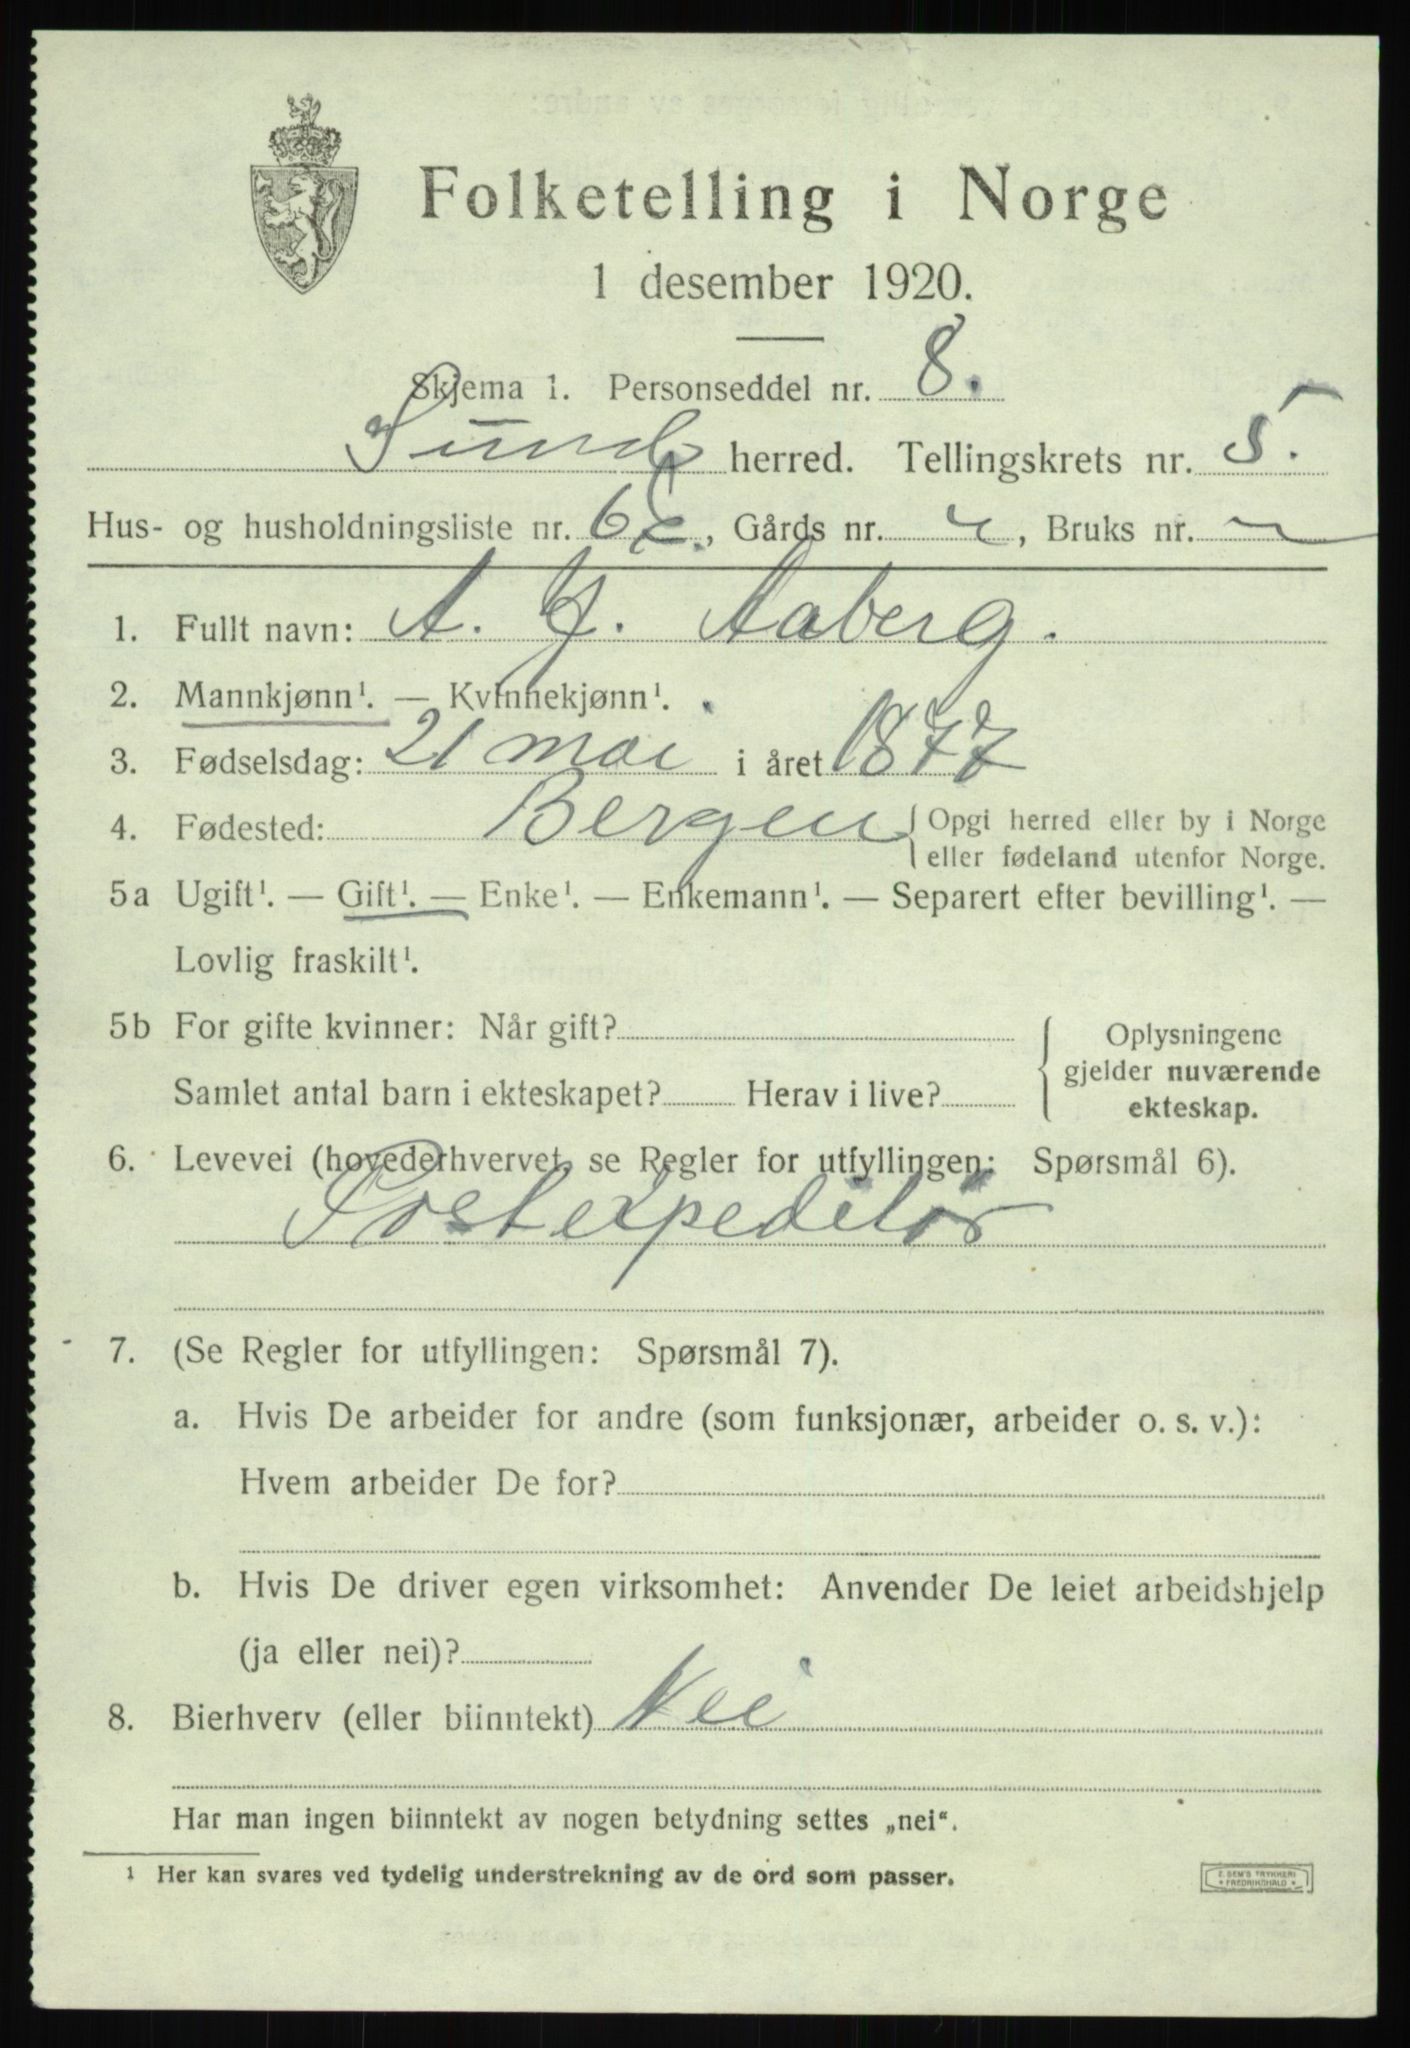 Folketelling i Norge
1 desember 1920.
Skjema 1. Personseddel nr. 8.
Sund herred. Tellingskrets nr. 5.
Hus- og husholdningsliste nr. 6, Gårds nr. , Bruks nr.
1. Fullt navn: A. J. Aaberg.
2. Mannkjønn¹. — Kvinnekjønn¹.
3. Fødselsdag: 21 mai i året 1877
4. Fødested: Bergen { Opgi herred eller by i Norge
eller fødeland utenfor Norge.
5a Ugift¹. — Gift¹. — Enke¹. — Enkemann¹. — Separert efter bevilling¹. —
Lovlig fraskilt¹.
5b For gifte kvinner: Når gift?
Samlet antal barn i ekteskapet? Herav i live?
Oplysningene
gjelder nuværende
ekteskap.
6. Levevei (hovederhvervet, se Regler for utfyllingen: Spørsmål 6).
Postexpeditør
7. (Se Regler for utfyllingen: Spørsmål 7).
a. Hvis De arbeider for andre (som funksjonær, arbeider o. s. v.):
Hvem arbeider De for?
b. Hvis De driver egen virksomhet: Anvender De leiet arbeidshjelp
(ja eller nei)?
8. Bierhverv (eller biinntekt) Nei
Har man ingen biinntekt av nogen betydning settes „nei“.
¹ Her kan svares ved tydelig understrekning av de ord som passer.
E. SEM'S TRYKKERI
* FREDRIKSHALD *